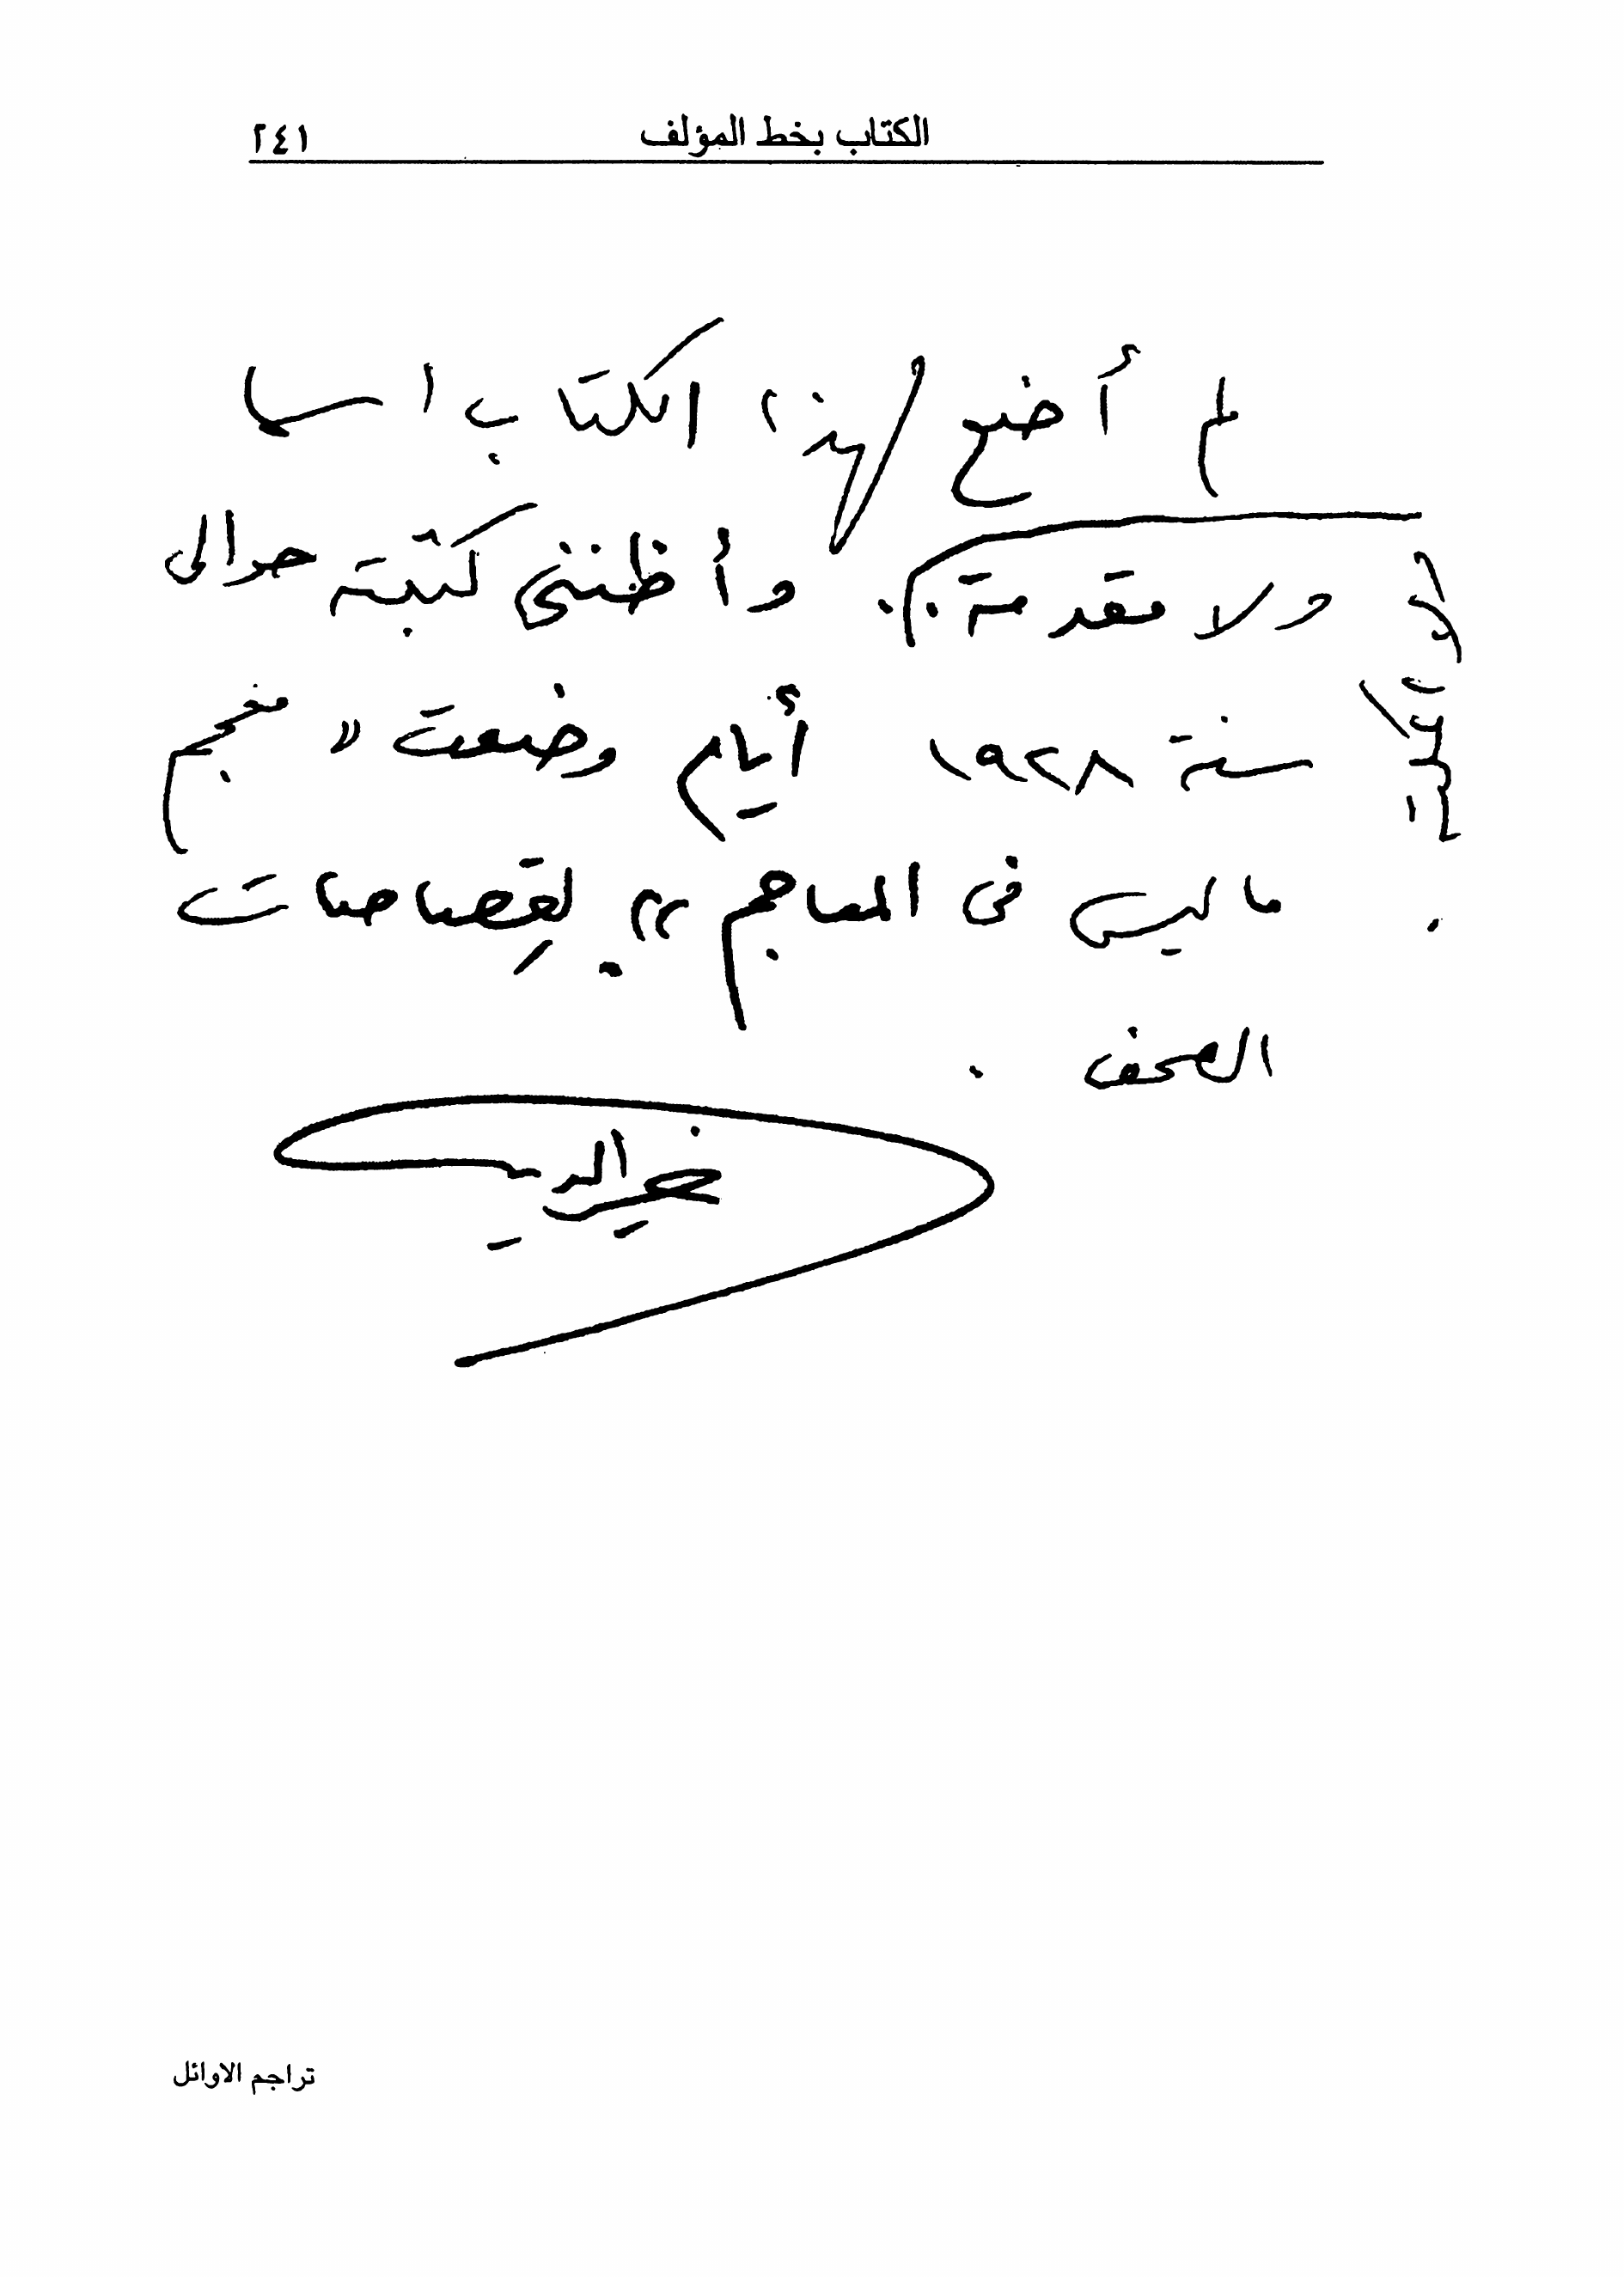 الكتاب بخط المؤلف ٢٤١
لم أضع لهذا الكتاب اسما
ولا مقدمة . وأظنني كتبته حوالى
سنة ١٩٢٨ أيام وضعت « معجم
ما ليس في المعاجم » لقصاصات
الصحف .
خير الدين
تراجم الاوائل